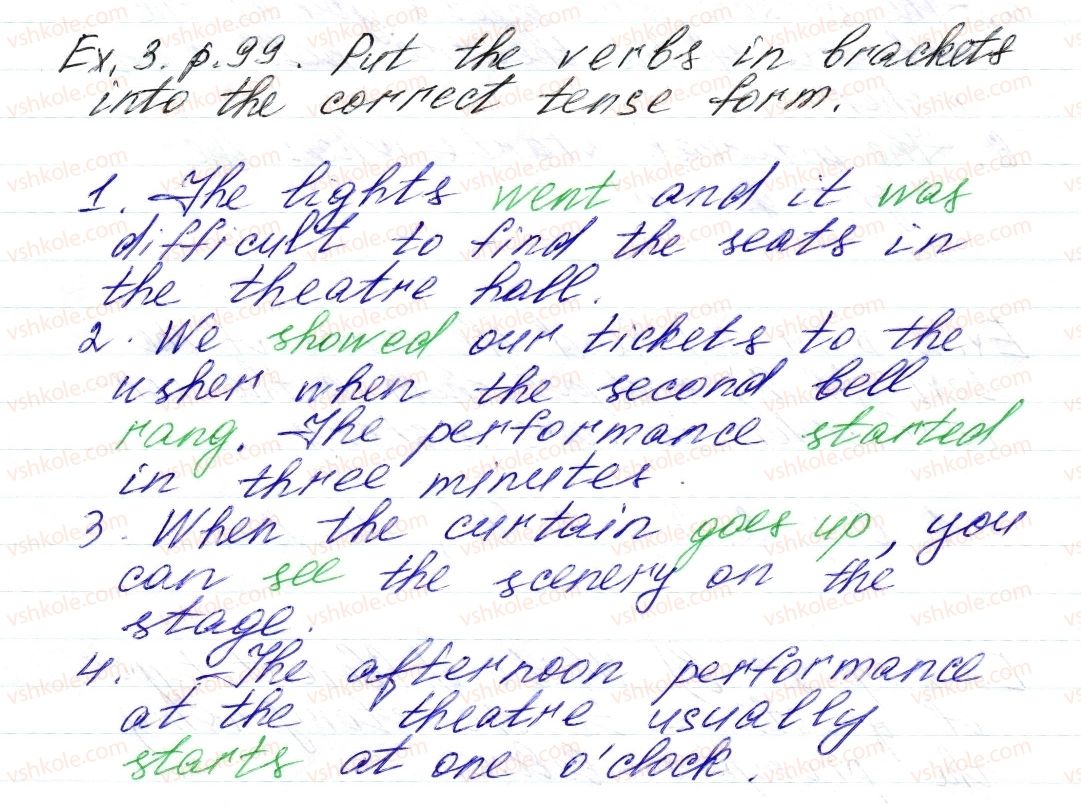 Ex. 3. p. 99. Put the verbs in brackets
into the correct tense form.
1. The lights went and it was
difficult to find the seats in
the theatre hall.
2. We showed our tickets to the
usher when the second bell
rang. The performance started
in three minutes.
3. When the curtain goes up, you
can see the scenery on the
stage.
4. The afternoon performance
at the theatre usually
starts at one o'clock.